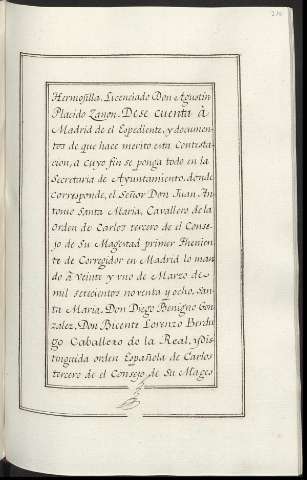 Hermosilla. Licenciado Don Agustin
Placido Zanon. Dese cuenta à
Madrid de el Espediente, y documen-
tos de que hace merito esta Contesta-
cion, a cuyo fin se ponga todo en la
Secretaria de Ayuntamiento, donde
corresponde, el Señor Don Juan An-
tonio Santa Maria, Cavallero de la
orden de Carlos tercero de el Conse-
jo de Su Magestad primer Theniente
te de Corregidor en Madrid lo man-
do à veinte y vno de Marzo de
mil setecientos noventa y ocho, san-
ta Maria, Don Diego Benigno Gon-
zalez. Don Bicente Lorenzo Berdu-
go Caballero de la Real, y dis-
tinguida orden Española de Carlos
tercero de el Consejo de Su Mages